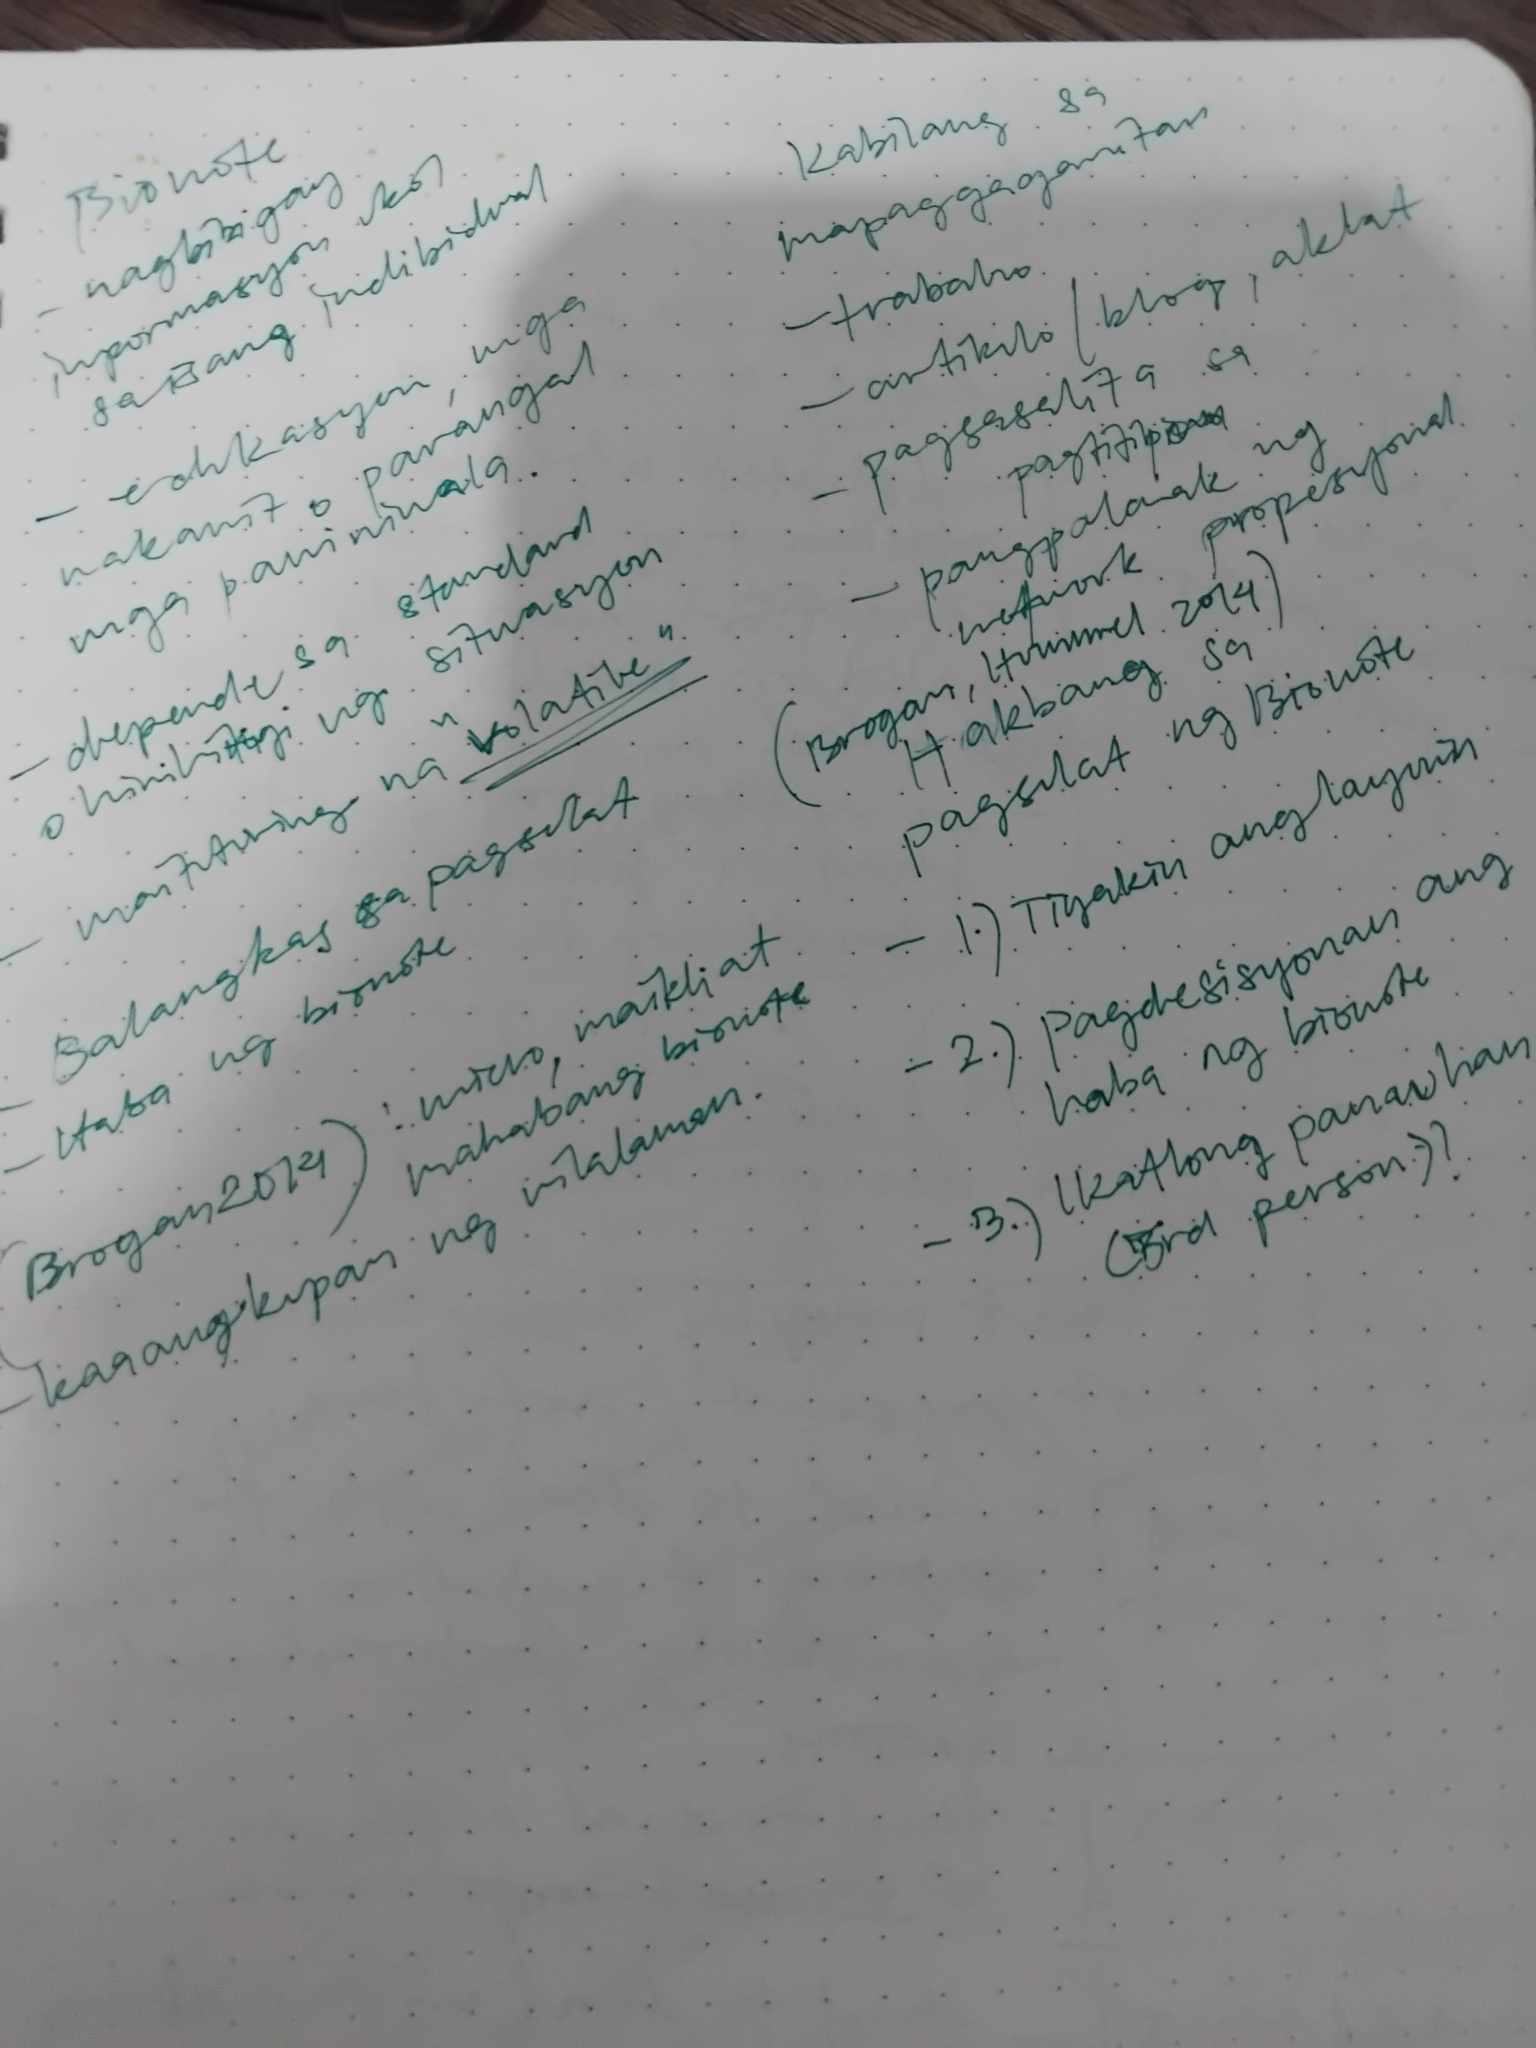 Bionote
- nagbibigay
inpormasyon kol
sa isang indibidwal
- edukasyon, mga
nakamit o parangal
mga paniniwala.
- depende sa standard
o hinihingi ng situwasyon
- maituturing na "volatile"
- Balangkas sa pagsulat
- Haba ng bionote
(Brogan 2014) : micro, maikli at
mahabang bionote
- kaangkupan ng nilalaman.
Kabilang sa
mapaggagamitan
- trabaho
- artikulo / blog, aklat
- pagsasalita sa
pagtitipon
- pangpalawak ng
network propesyonal
(Brogan, Hummel 2014)
Hakbang sa
pagsulat ng Bionote
- 1.) Tiyakin ang layunin
- 2.) Pagdesisyonan ang
haba ng bionote
- 3.) Ikatlong panauhan
(3rd person)